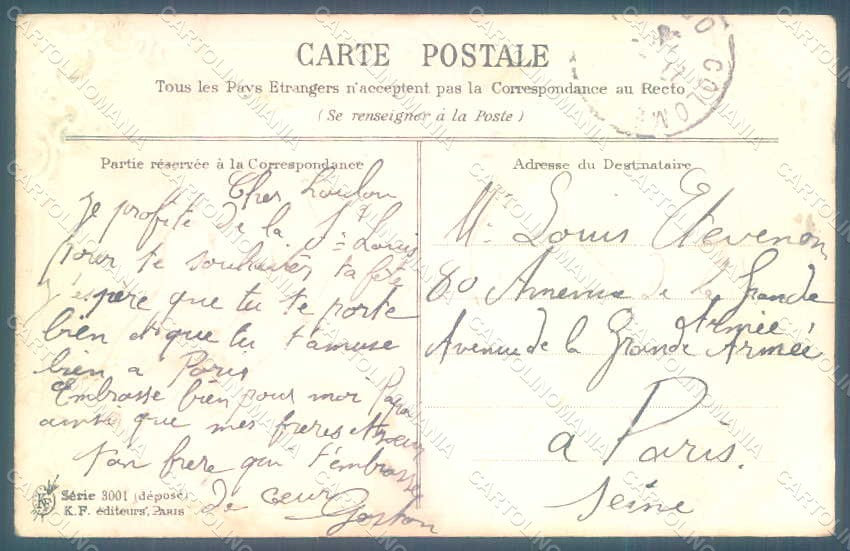 CARTE POSTALE
Tous les Pays Etrangers n'acceptent pas la Correspondance au Recto
(Se renseigner à la Poste)
COLOM
Partie réservée à la Correspondance
Cher Loulou
je profite de la St Louis
pour te souhaiter ta fête
j'espère que tu te porte
bien et que tu t'amuse
bien a Paris
Embrasse bien pour moi Papa
ainsi que mes frères et
ton frère qui t'embrasse
de cœur
Gaston
Série 3001 (déposé)
K.F. éditeurs, PARIS
Adresse du Destinataire
Mr Louis Etevenon
80 de la Grande
Armée
Avenue de la Grande Armée
a Paris.
Seine
CARTOLINOMANIA